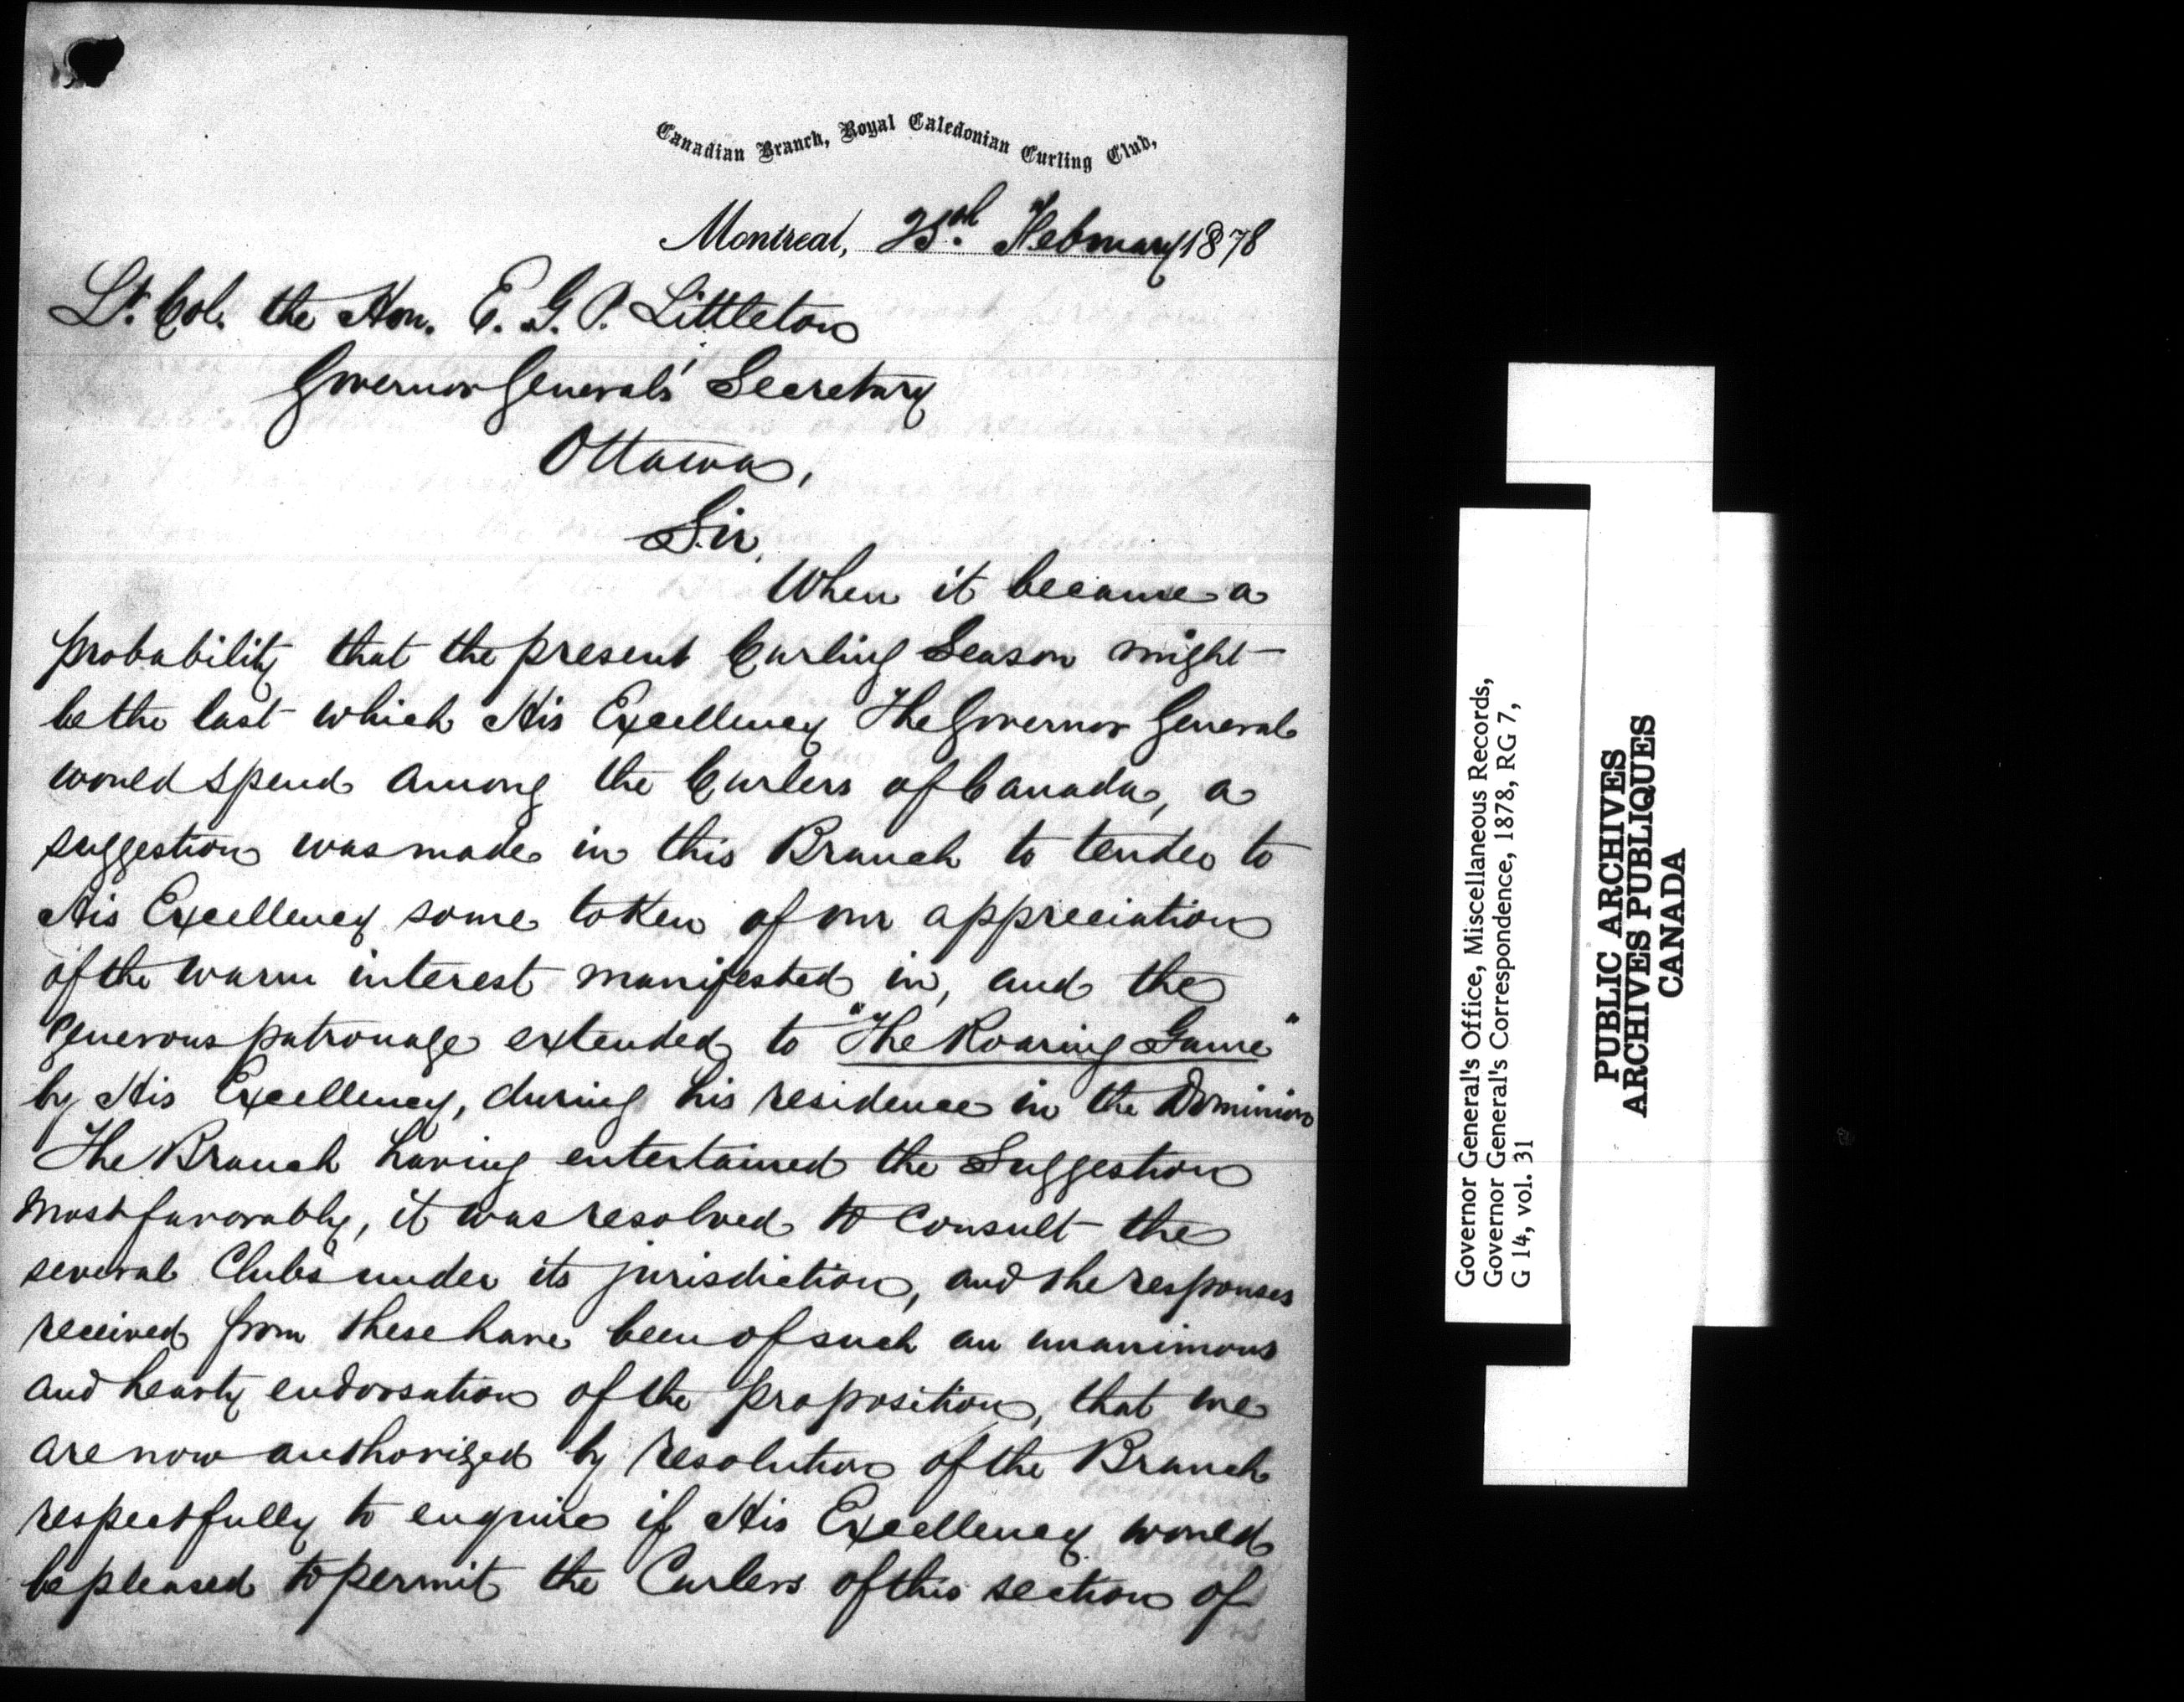 Canadian Branch, Royal Caledonian Curling Club,
Montreal, 25th. February 1878
Lt. Col. the Hon. E. G. P. Littleton
Governor Generals' Secretary
Ottawa,
Sir,
When it became a
probability that the present Curling Season might
be the last which His Excellency The Governor General
would spend among the Curlers of Canada, a
suggestion was made in this Branch to tender to
His Excellency some token of our appreciation
of the warm interest manifested in, and the
generous patronage extended to "The Roaring Game"
by His Excellency, during his residence in the Dominion
The Branch having entertained the Suggestion
most favorably, it was resolved to consult the
several Clubs under its jurisdiction, and the responses
received from these have been of such an unanimous
and hearty endorsation of the proposition, that we
are now authorized by resolution of the Branch
respectfully to enquire if His Excellency would
be pleased to permit the Curlers of this section of
Governor General's Office, Miscellaneous Records,
Governor General's Correspondence, 1878, RG 7,
G 14, vol. 31
PUBLIC ARCHIVES
ARCHIVES PUBLIQUES
CANADA